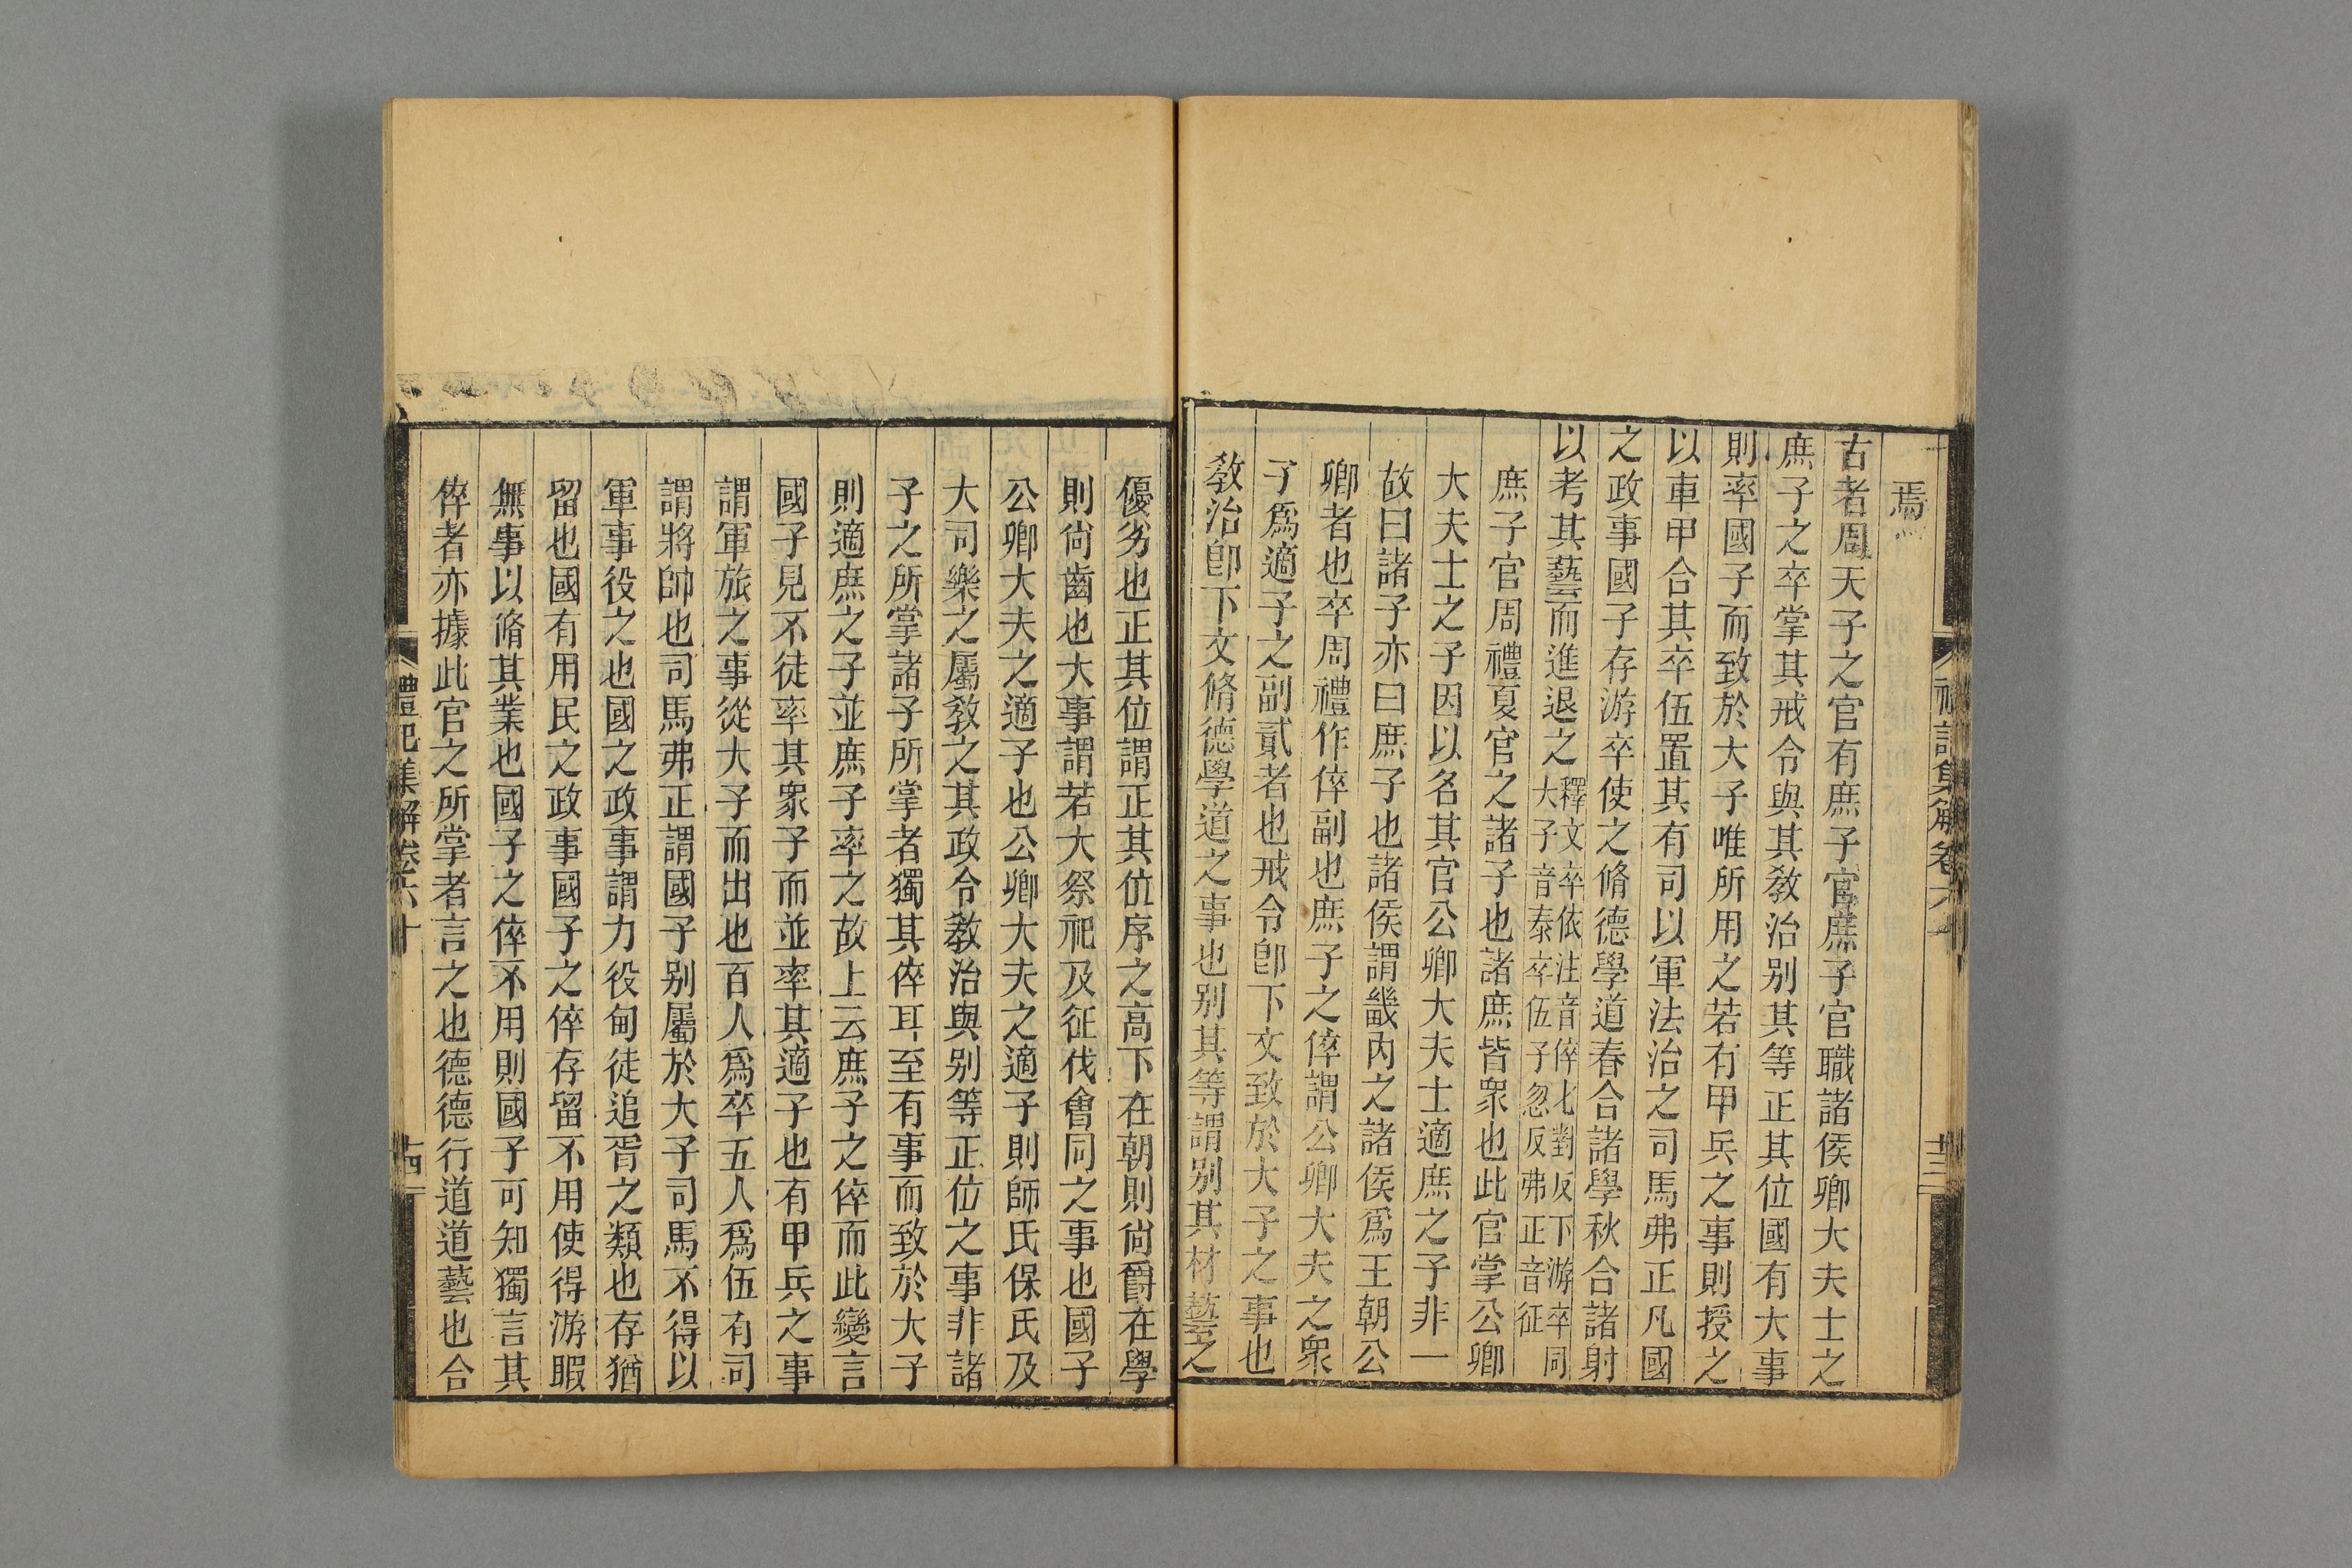 焉
古者周天子之官有庶子官庶子官職諸侯卿大夫士之
庶子之卒掌其戒令與其教治别其等正其位國有大事
則率國子而致於大子唯所用之若有甲兵之事則授之
以車甲合其卒伍置其有司以軍法治之司馬弗正凡國
之政事國子存游卒使之脩德學道春合諸學秋合諸射
以考其藝而進退之
釋文卒依注音倅七對反下游卒同
大子音泰卒伍子忽反弗正音征
庶子官周禮夏官之諸子也諸庶皆衆也此官掌公卿
大夫士之子因以名其官公卿大夫士適庶之子非一
故曰諸子亦曰庶子也諸侯謂畿内之諸侯爲王朝公
卿者也卒周禮作倅副也庶子之倅謂公卿大夫之衆
子爲適子之副貳者也戒令卽下文致於大子之事也
教治卽下文脩德學道之事也别其等謂别其材藝之
優劣也正其位謂正其位序之高下在朝則尙爵在學
則尙齒也大事謂若大祭祀及征伐會同之事也國子
公卿大夫之適子也公卿大夫之適子則師氏保氏及
大司樂之屬教之其政令教治與别等正位之事非諸
子之所掌諸子所掌者獨其倅耳至有事而致於大子
則適庶之子並庶子率之故上云庶子之倅而此變言
國子見不徒率其衆子而並率其適子也有甲兵之事
謂軍旅之事從大子而出也百人爲卒五人爲伍有司
謂將帥也司馬弗正謂國子别屬於大子司馬不得以
軍事役之也國之政事謂力役甸徒追胥之類也存猶
留也國有用民之政事國子之倅存留不用使得游暇
無事以脩其業也國子之倅不用則國子可知獨言其
倅者亦據此官之所掌者言之也德德行道道藝也合
禮記集解卷六十
十四
禮記集解卷六十
十三